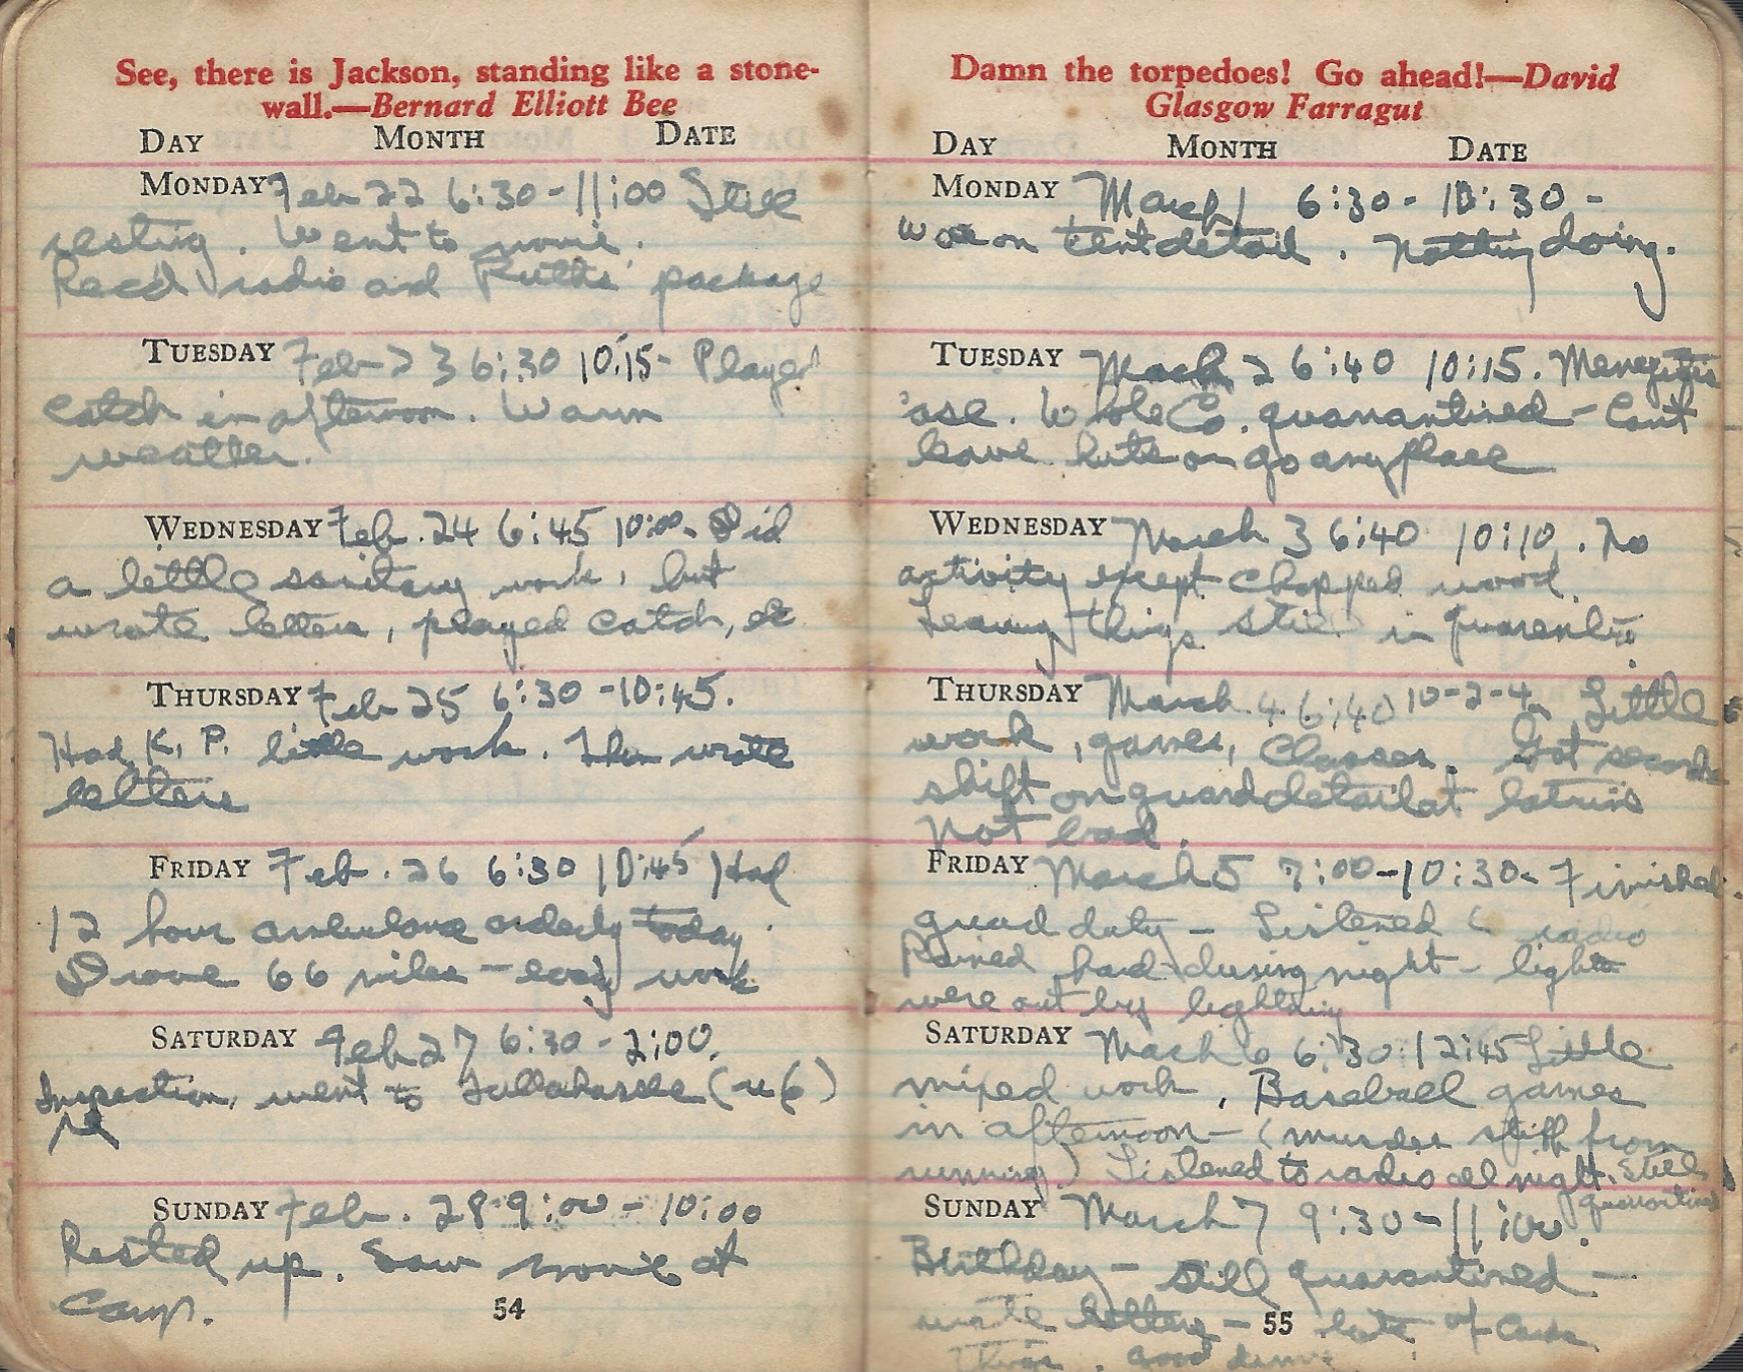 See, there is Jackson, standing like a stone-
wall.—Bernard Elliott Bee
DAY MONTH DATE
MONDAY Feb 22 6:30-11:00 Still
resting. Went to movie.
Rec'd radio and Ruth's package
TUESDAY Feb 23 6:30 10:15- Played
catch in afternoon. Warm
weather.
WEDNESDAY Feb. 24 6:45 10:00. Did
a little sanitary work, but
wrote letters, played catch, etc
THURSDAY Feb 25 6:30-10:45.
Had K.P. little work. Then wrote
letters
FRIDAY Feb. 26 6:30 10:45 Had
12 hour ambulance orderly today.
Drove 66 miles - easy work
SATURDAY Feb 27 6:30-2:00.
Inspection, went to Tallahassee
SUNDAY Feb. 28 9:00-10:00
Rested up. Saw movie at
camp.
54
Damn the torpedoes! Go ahead!—David
Glasgow Farragut
DAY MONTH DATE
MONDAY March 1 6:30-10:30-
was on tent detail. Nothing doing.
TUESDAY March 2 6:40 10:15.
Whole Co. quarantined - Can't
leave huts or go any place
WEDNESDAY March 3 6:40 10:10. No
activity except chopped wood.
things still in
THURSDAY March 4 6:40 10-2-4. Little
work, games, classes. Got second
shift on guard detail at latrine
Not bad.
FRIDAY March 5 7:00-10:30- Finished
guard duty - Listened radio
Rained hard during night - lights
were out by lightning
SATURDAY March 6 6:30 12:45 Little
mixed work. Baseball games
in afternoon - (muscles stiff from
running) Listened to radio all night. Still
quarantined
SUNDAY March 7 9:30-11:00.
Birthday - still quarantined -
wrote letters - lots of
things. good
55